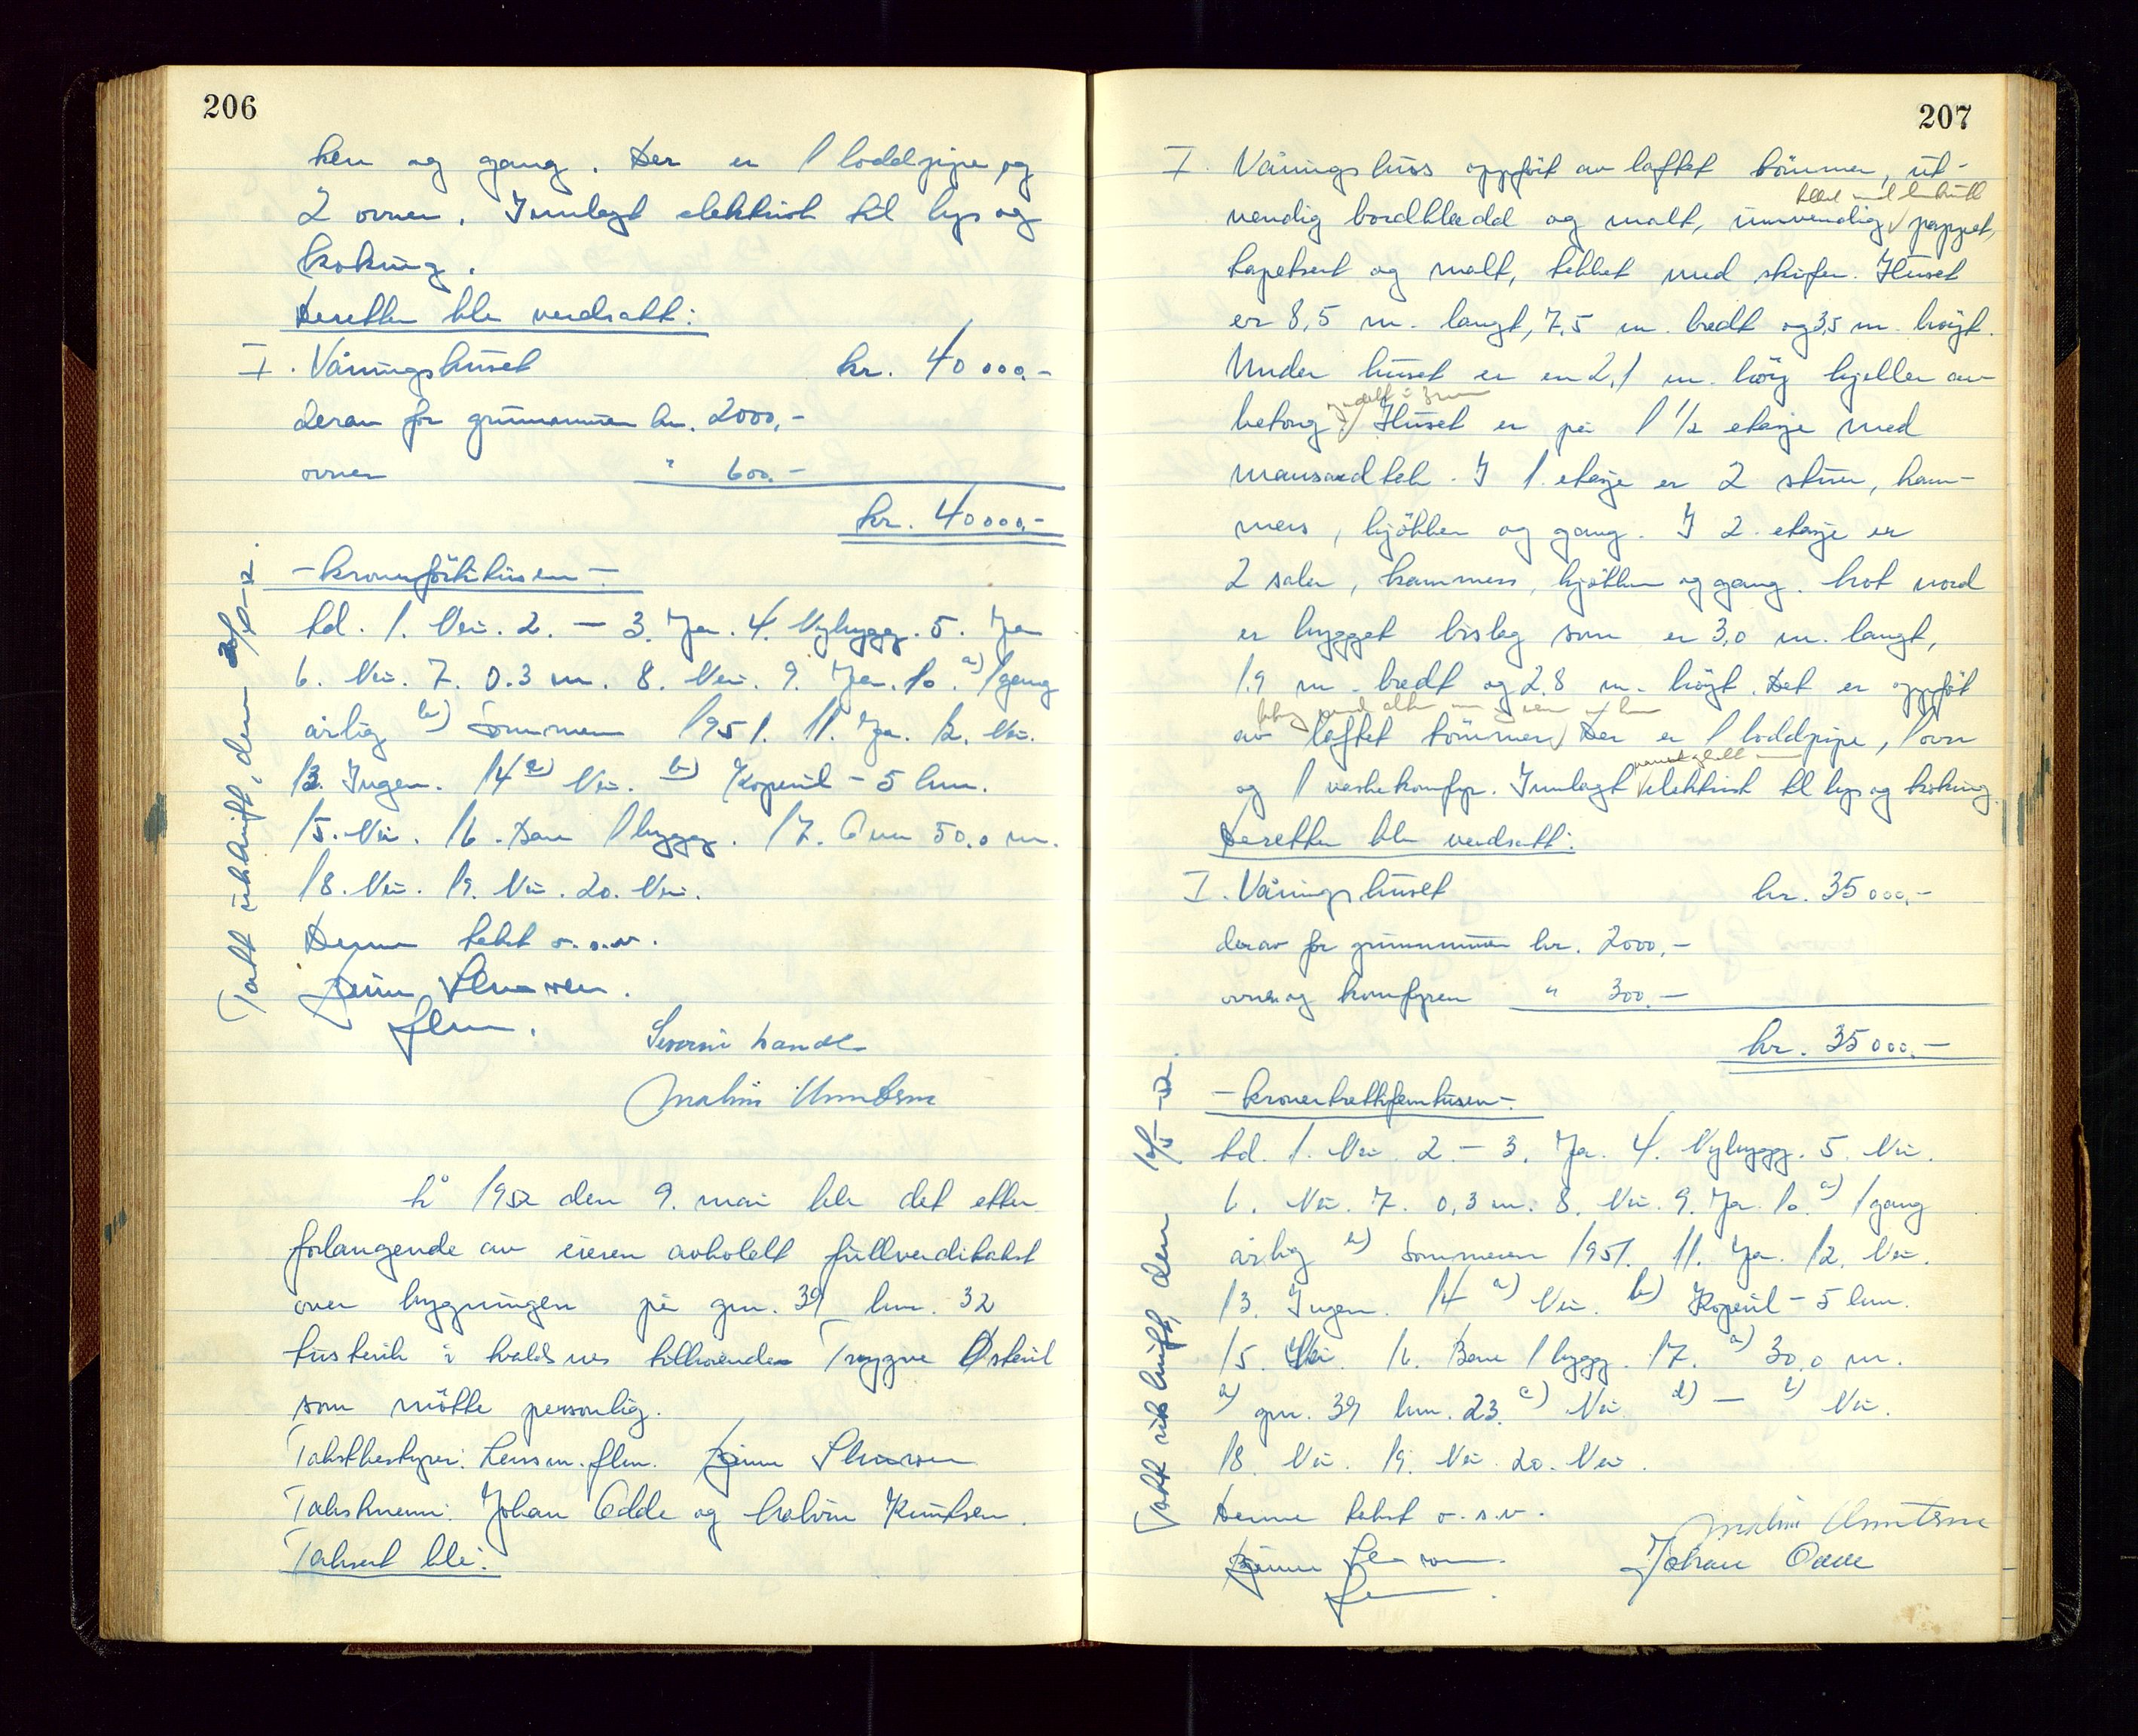 206
ken og gang. Der er 1 loddpipe og
2 ovner. Innlagt elektrisk til lys og
koking.
Deretter ble verdsatt:
I. Våningshuset kr. 40000.-
derav for grunnmuren kr. 2000,-
ovner " 600.-
kr. 40000,-
-kronerførtitusen-
bd. 1. Nei. 2. - 3. Ja. 4. Nybygg. 5. Ja
6. Nei. 7. 0.3 m. 8. Nei. 9. Ja. 10. a) 1 gang
årlig b) Sommeren 1951. 11. Ja. 12. Nei.
13. Ingen. 14 a) Nei. b) Kopervik - 5 km.
15. Nei. 16. Bare 1 bygg. 17. Over 50.0 m.
18. Nei. 19. Nei. 20. Nei.
Denne takst o.s.v.
flm.
Malvin Knutsen
Tatt utskrift, den
År 1952 den 9. mai ble det etter
forlangende av eieren avholdt fullverditakst
over bygningen på gnr. 39 bnr. 32
i Avaldsnes tilhørende Trygve Østevik
som møtte personlig.
Takstbestyrer: Lensm. flm.
Takstmenn: Johan Odde og Malvin Knutsen.
Taksert ble:
207
I. Våningshus oppført av laftet tømmer, ut-
vendig bordkledd og malt, innvendig pappet,
tapetsert og malt, tekket med skifer. Huset
er 8,5 m. langt, 7,5 m. bredt og 3,5 m. høyt.
Under huset er en 2,1 m. høy kjeller av
betong og delt i 3 rum Huset er på 1 1/2 etasje med
mansardtak. I 1. etasje er 2 stuer, kam-
mers, kjøkken og gang. I 2. etasje er
2 saler, kammers, kjøkken og gang. Mot nord
er bygget bislag som er 3,0 m. langt,
1.9 m. bredt og 2.8 m. høyt. Det er oppført
av laftet tømmer. Der er 1 loddpipe, 1 ovn
og 1 vaskekomfyr. Innlagt elektrisk til lys og koking.
Deretter ble verdsatt:
I. Våningshuset kr. 35000,-
derav for grunnmuren kr. 2000,-
ovner og komfyren " 300.-
kr. 35000.-
-kronertrettifemtusen-
bd. 1. Nei. 2. - 3. Ja. 4. Nybygg. 5. Nei.
6. Nei. 7. 0,3 m. 8. Nei. 9. Ja. 10. a) 1 gang
årlig b) Sommeren 1951. 11. Ja. 12. Nei.
13. Ingen. 14 a) Nei. b) Kopervik - 5 km.
15. Nei. 16. Bare 1 bygg. 17. a) 30,0 m.
b) gnr. 39 bnr. 23. c) Nei. d) - e) Nei.
18. Nei. 19. Nei. 20. Nei.
Denne takst o.s.v.
Malvin Knutsen
Johan Odde
Tatt utskrift, den